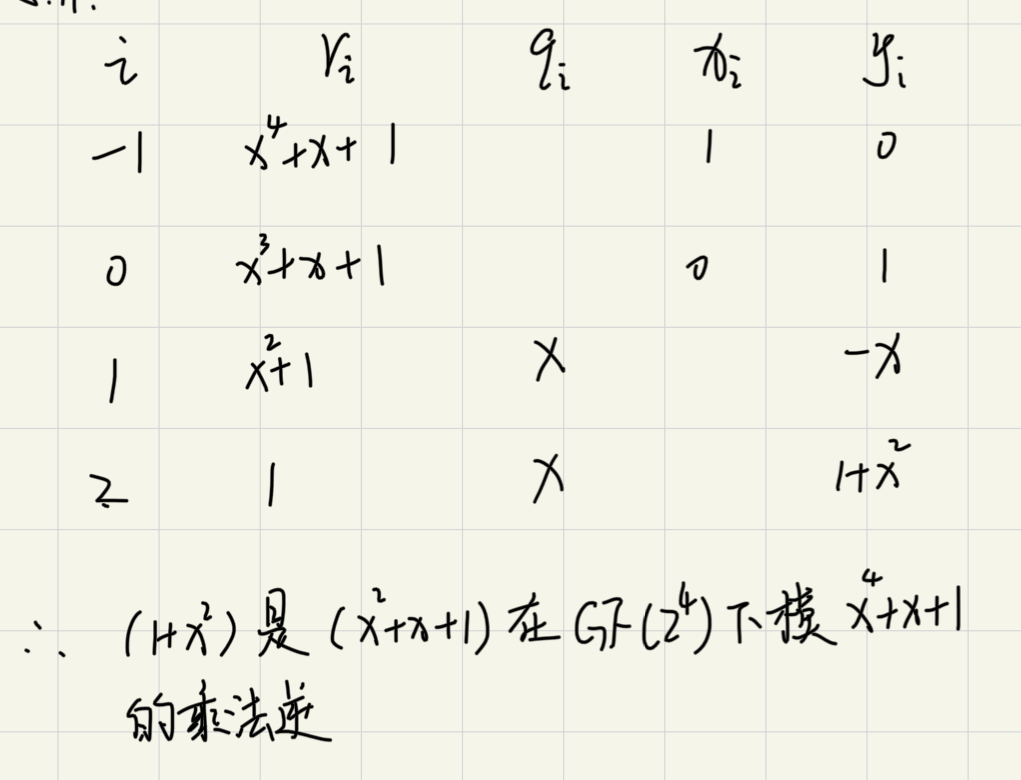 i rᵢ qᵢ xᵢ yᵢ
-1 x⁴+x+1 1 0
0 x³+x+1 0 1
1 x²+1 x -x
2 1 x 1+x²
∴ (1+x²)是(x²+x+1)在GF(2⁴)下模x⁴+x+1
的乘法逆